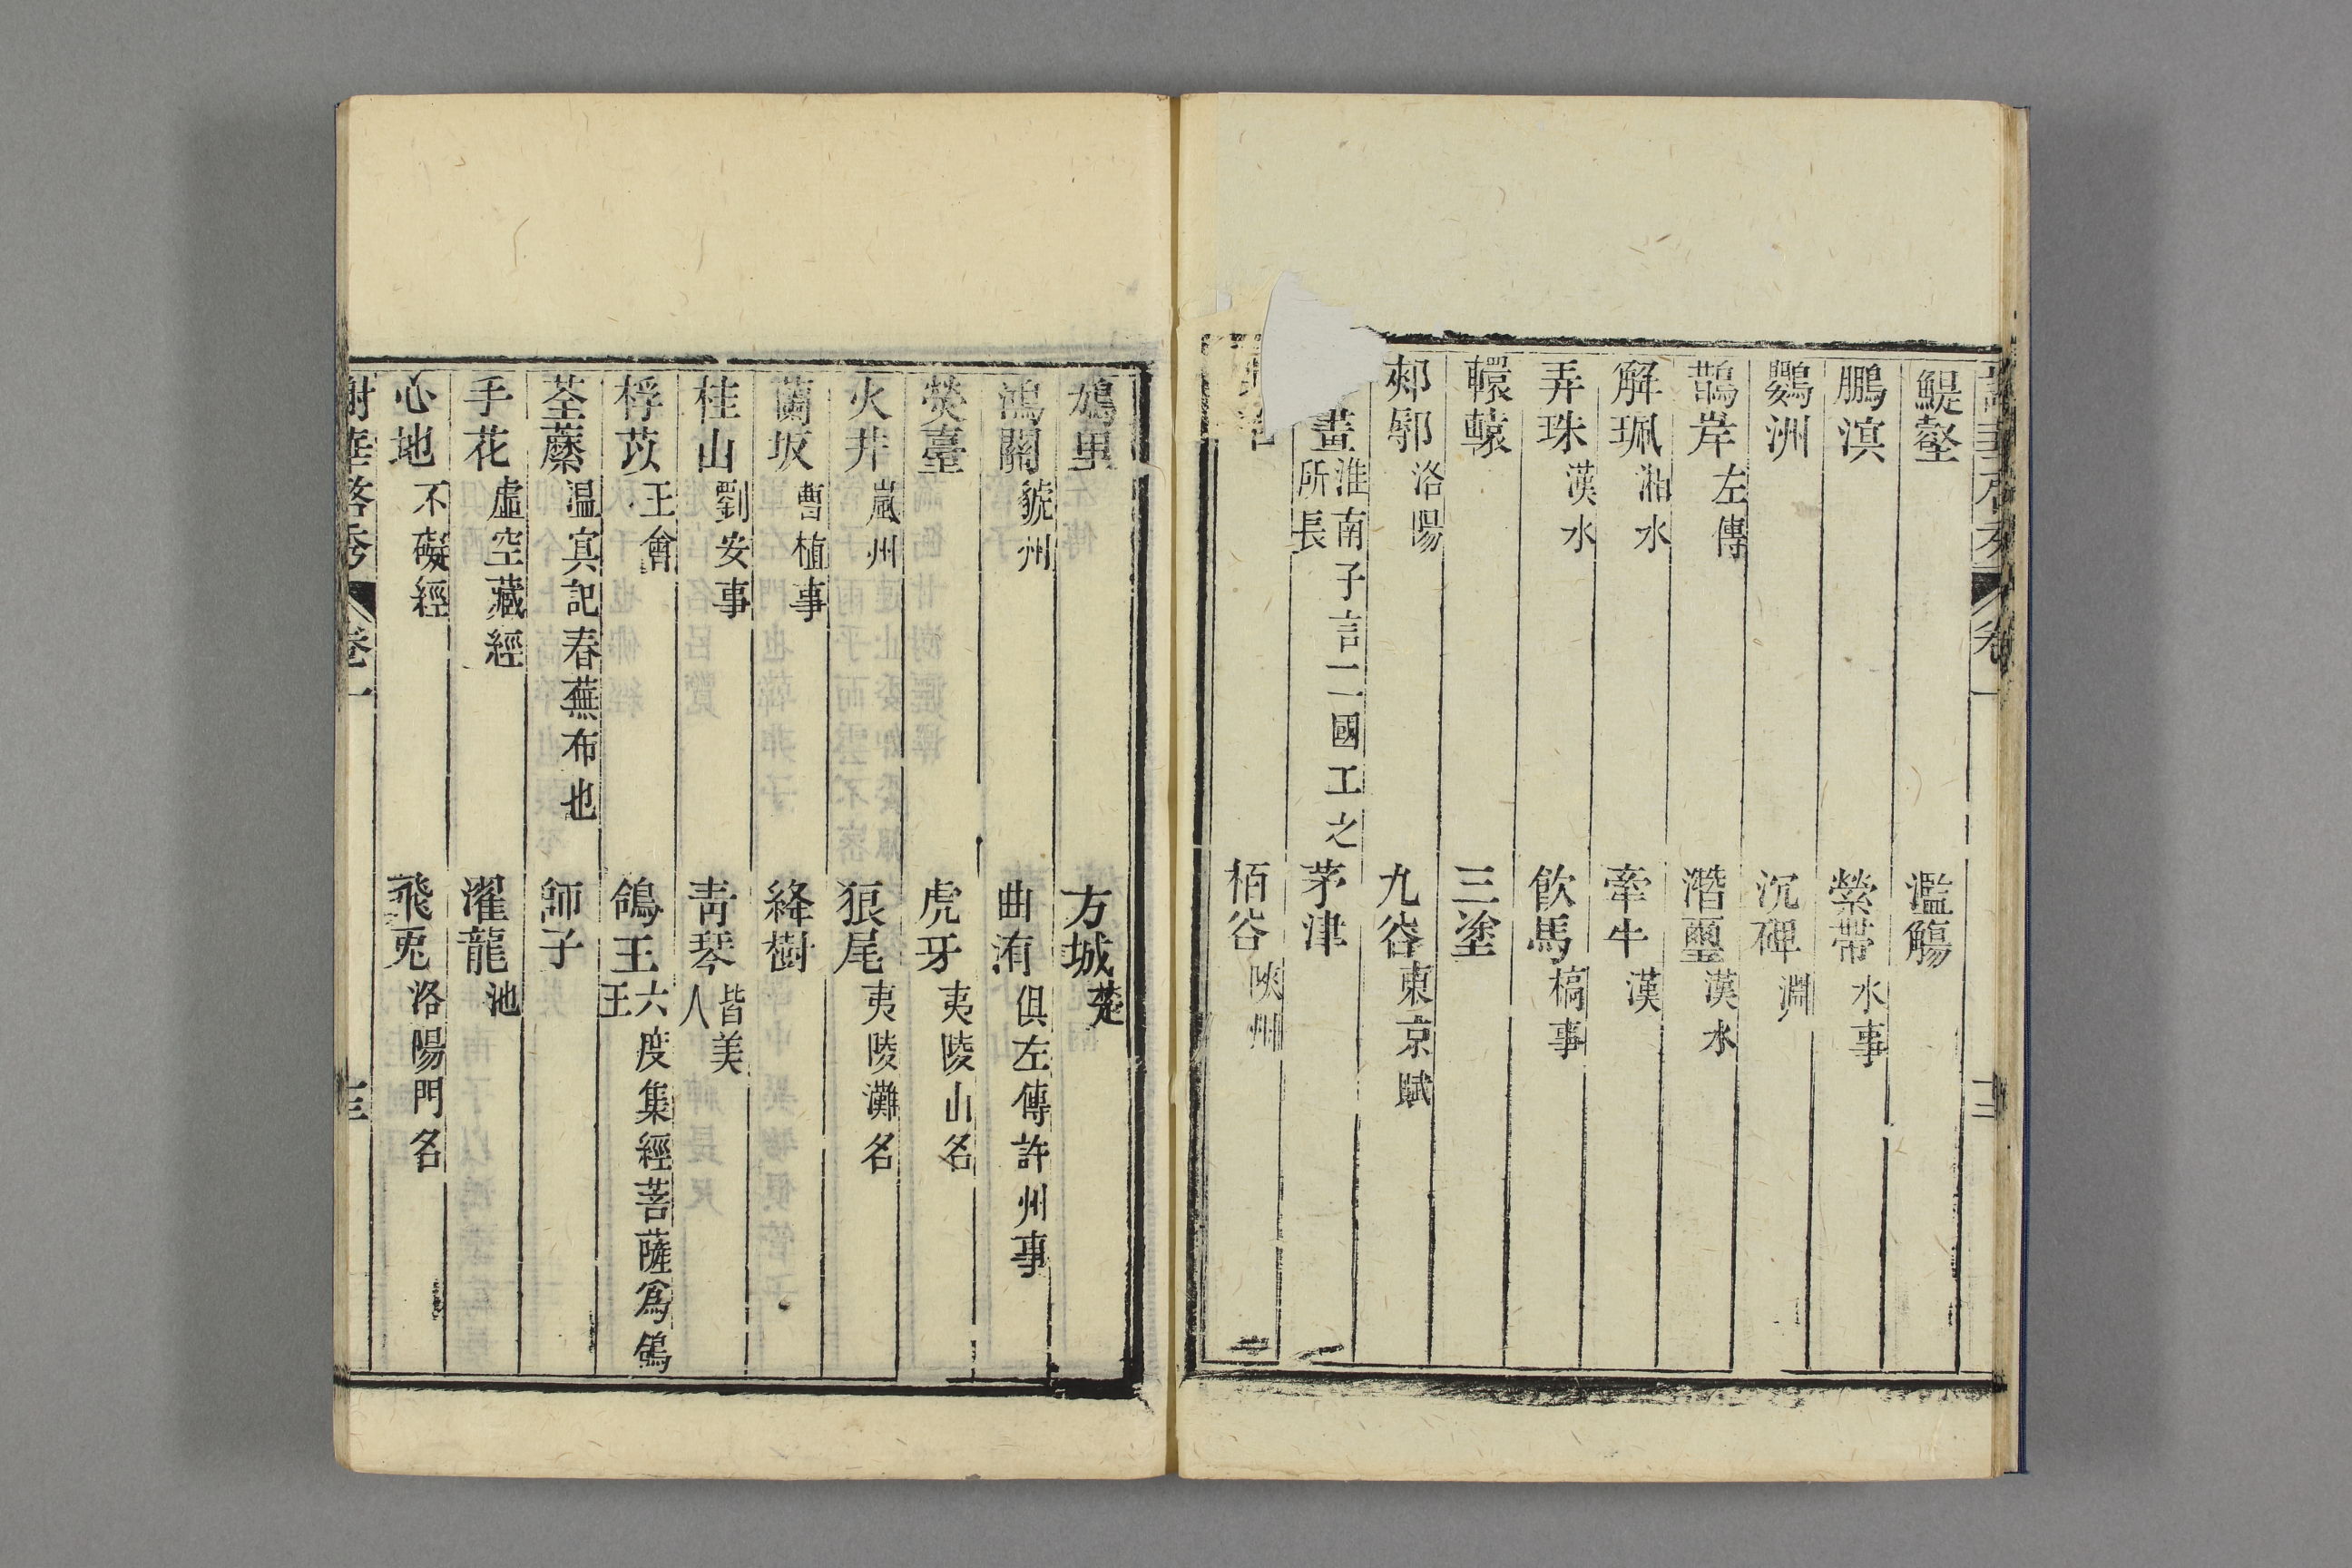 鯷壑 濫觴
鵬溟 縈帶水事
鸚洲 沉碑淵
鵲岸左傳 潛璽漢水
解珮湘水 牽牛漢
弄珠漢水 飲馬橋事
轘轅 三塗
郟鄏洛陽 九谷東京賦
畫淮南子言二國工之所長 茅津
栢谷陝州
卷一
鳩里 方城楚
鴻關虢州 曲洧俱左傳許州事
熒臺 虎牙夷陵山名
火井嵐州 狼尾夷陵灘名
蘭坂曹植事 絳樹
桂山劉安事 靑琴皆美人
桴苡王會 鴿王六度集經菩薩爲鴿王
荃蘪溫冥記春蕪布也 師子
手花虛空藏經 濯龍池
心地不礙經 飛兎洛陽門名
謝華啓秀 卷一 三